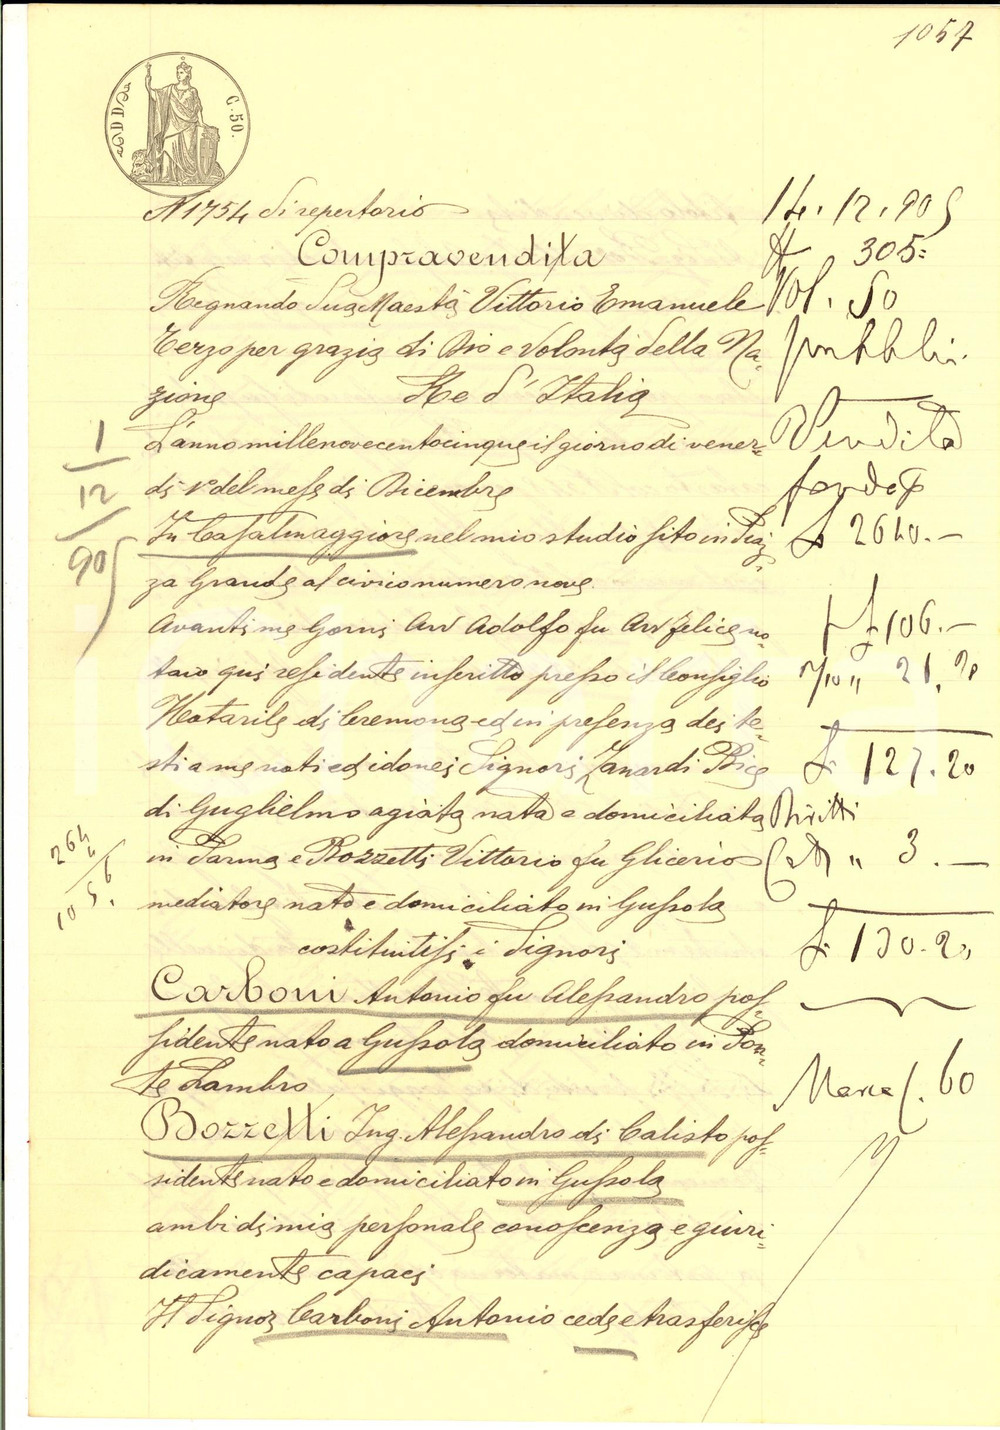 1057
C. 50.
N 1754 di repertorio
Compravendita
Regnando Sua Maestà Vittorio Emanuele
Terzo per grazia di Dio e volontà della Na-
zione Re d'Italia
L'anno millenovecentocinque il giorno di vener-
di 1° del mese di Dicembre
In Casalmaggiore nel mio studio sito in Piaz-
za Grande al civico numero nove.
Avanti me Gorni Avv Adolfo fu Avv Felice no-
taio qui residente inscritto presso il Consiglio
Notarile di Cremona ed in presenza dei te-
sti a me noti ed idonei Signori Zanardi Bice
di Guglielmo agiata nata e domiciliata
in Parma e Bozzetti Vittorio fu Glicerio
mediatore nato e domiciliato in Gussola
costituitisi i Signori
Carboni Antonio fu Alessandro pos-
sidente nato a Gussola domiciliato in Pon-
te Lambro
Bozzetti Ing. Alessandro di Calisto pos-
sidente nato e domiciliato in Gussola
ambi di mia personale conoscenza e giuri-
dicamente capaci
Il Signor Carboni Antonio cede e trasferisce
1
12
905
264
4
10 56.
14.12.905
N 305=
Vol. 50
pubblici.
Vendita
fondo
£ 2640.-
£ 106.-
2/10 " 21.20
£ 127.20
Diritti
Cat " 3.-
£ 130.20
Marca £. 60